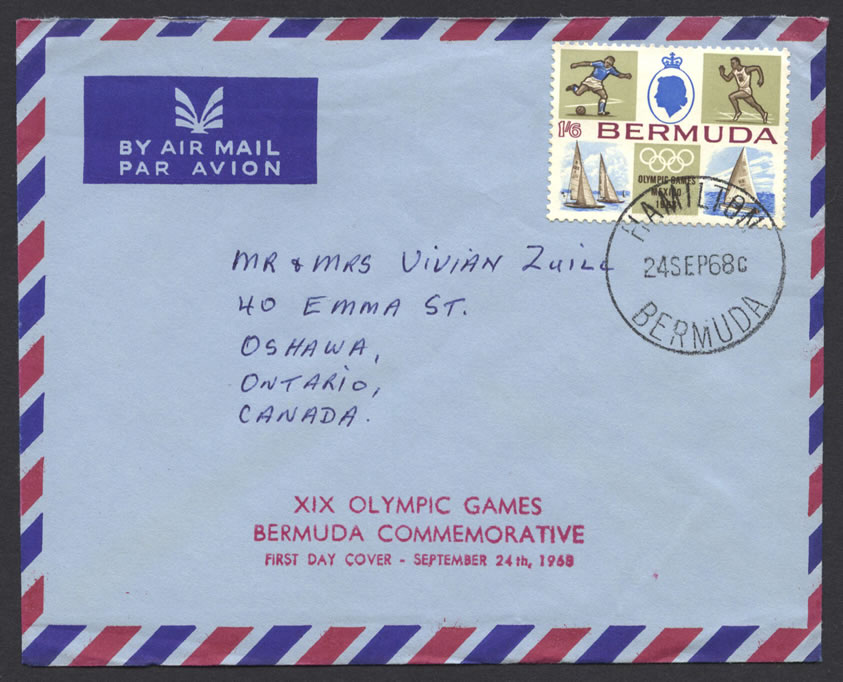 BY AIR MAIL
PAR AVION
1/6 BERMUDA
OLYMPIC GAMES
MEXICO
1968
HAMILTON
24SEP68C
BERMUDA
MR & MRS VIVIAN ZUILL
40 EMMA ST.
OSHAWA,
ONTARIO,
CANADA.
XIX OLYMPIC GAMES
BERMUDA COMMEMORATIVE
FIRST DAY COVER - SEPTEMBER 24th, 1968